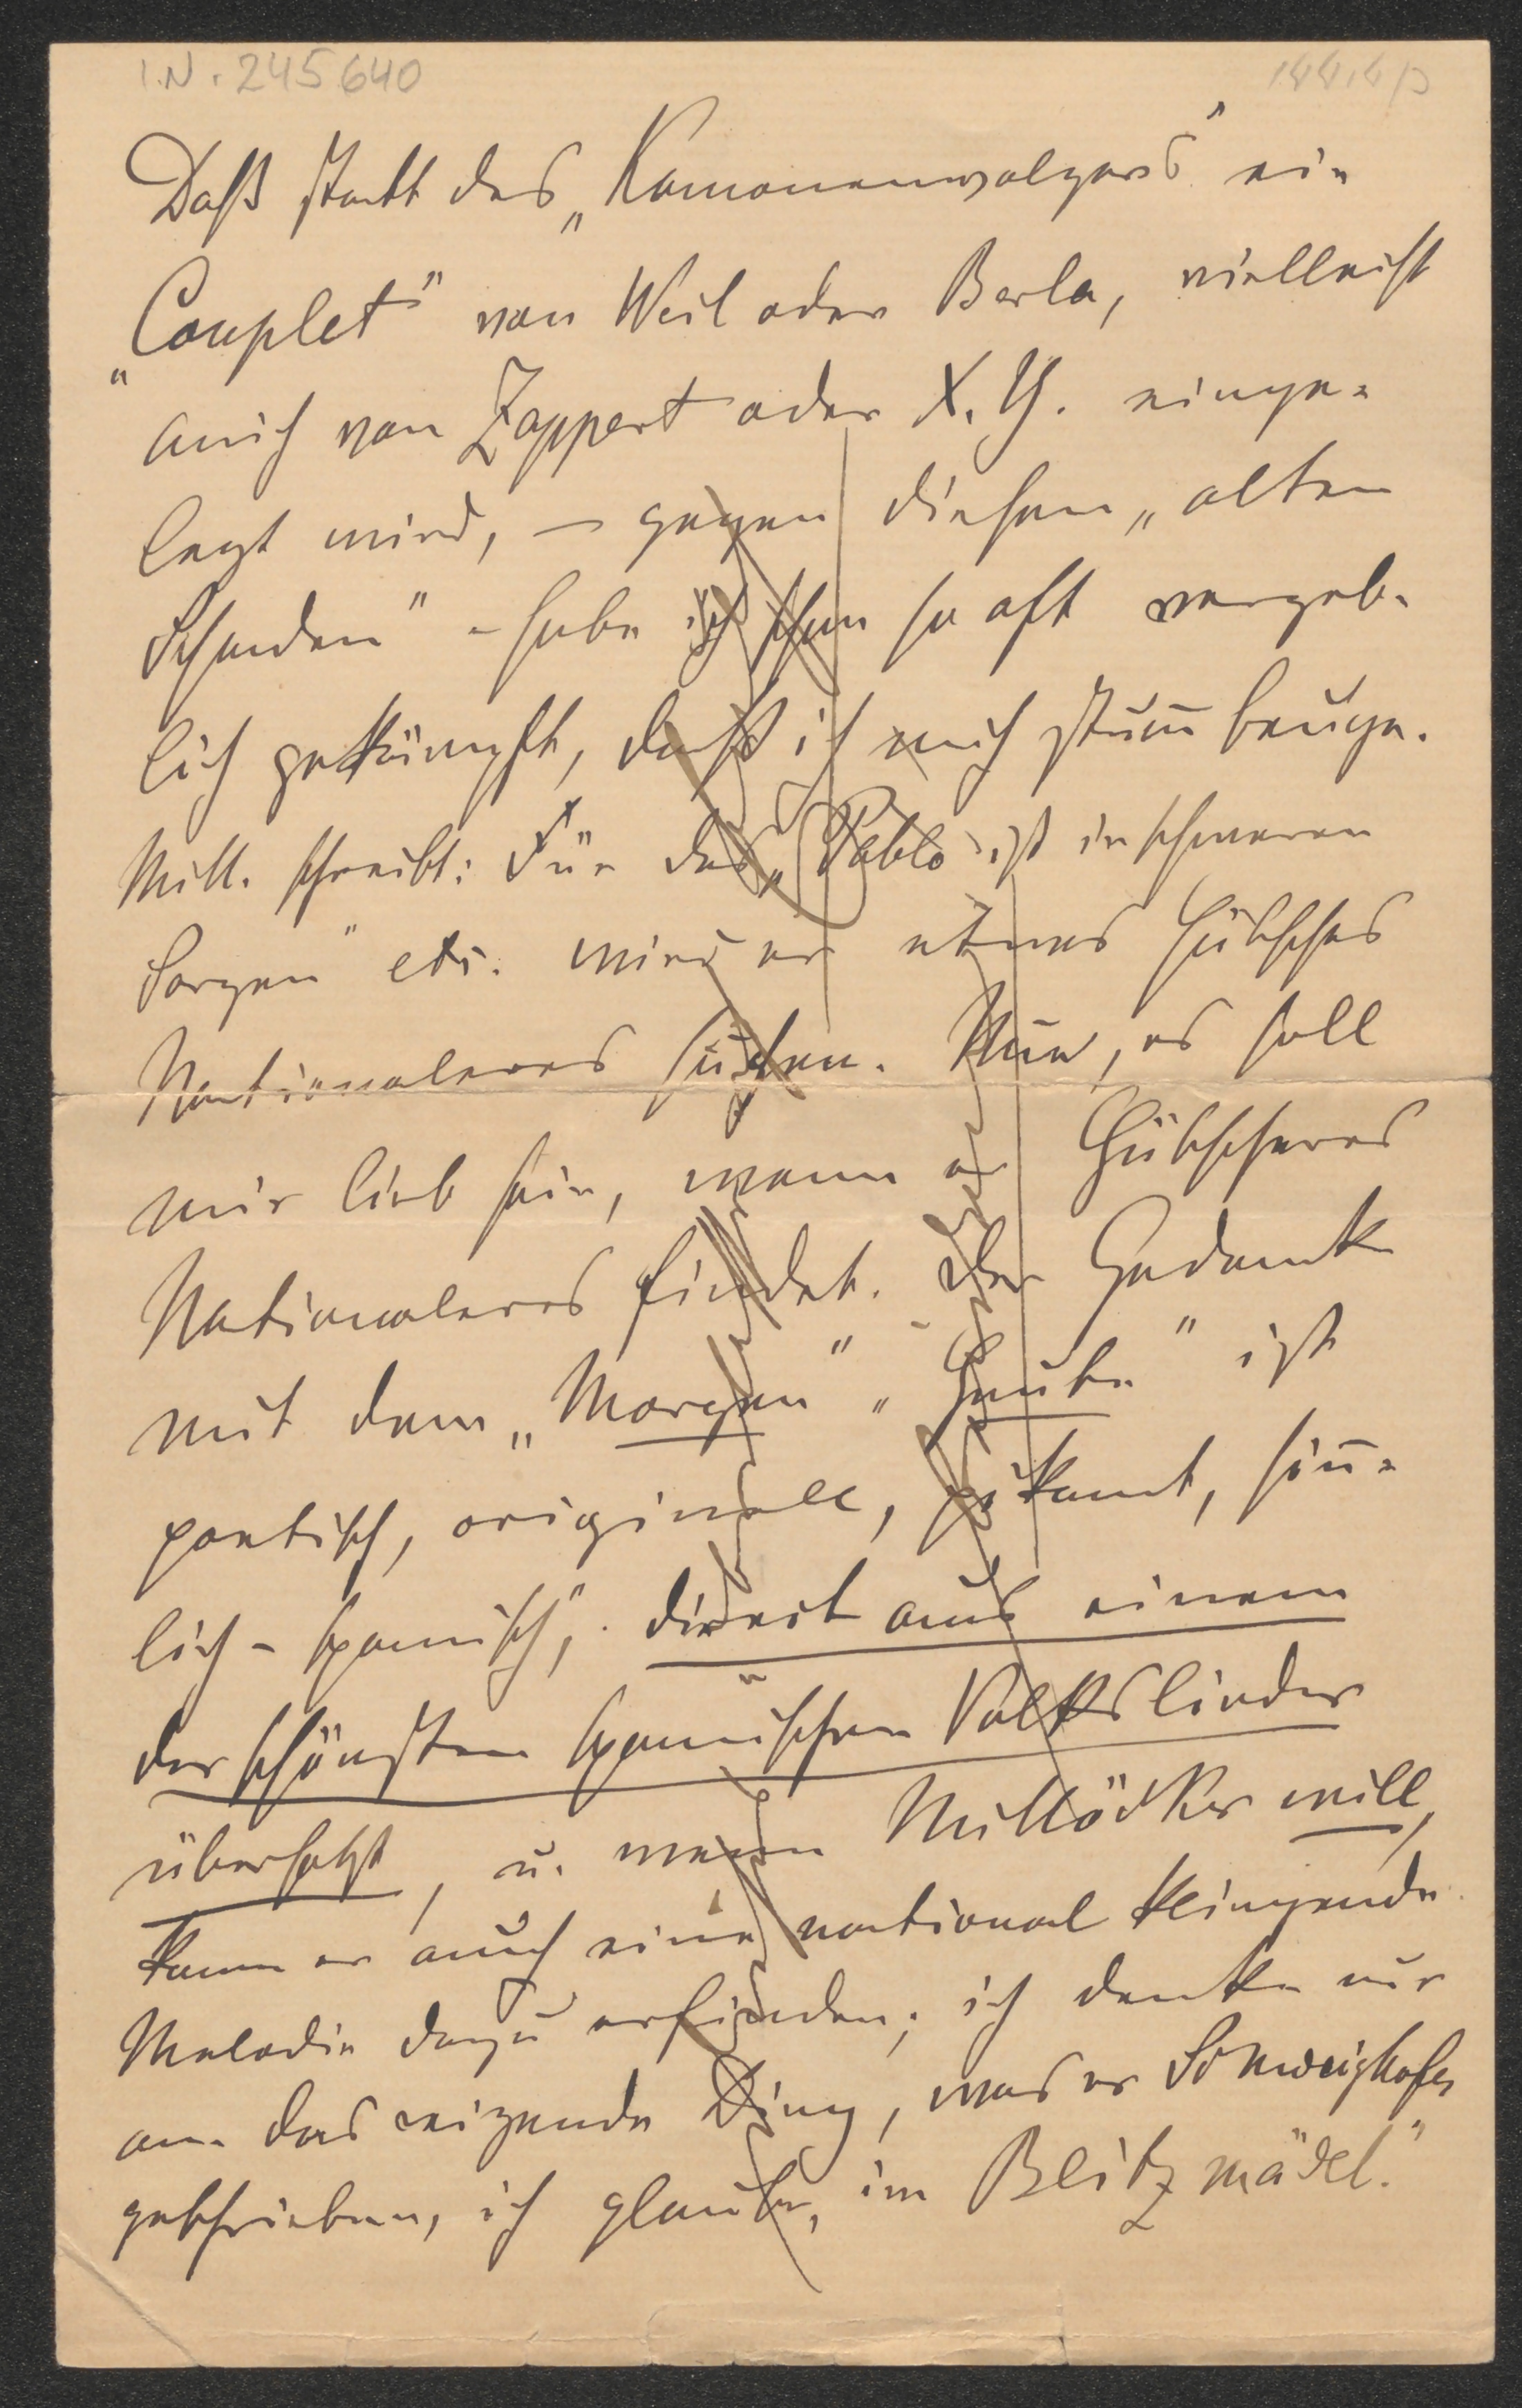 I.N. 245640
Daß statt des „Romanenwalzers“ ein
„Couplet“ von Weil oder Berla, vielleicht
auch von Zappert oder X. Y. einge-
legt wird, – gegen diesen „alten
Schaden“ – habe ich schon so oft vergeb-
lich gekämpft, daß ich mich stum̄ beuge.
Mill. schreibt: Für das „Pablo ist in schweren
Sorgen“ etc. wird er etwas hübsches
Nationaleres suchen. Nun, es soll
mir lieb sein, wenn er Hübscheres
Nationaleres findet. Der Gedanke
mit dem „Morgen“ „Heute“ ist
poetisch, originell, pikant, sin̄-
lich-spanisch, direct aus einem
der schönsten spanischen Volkslieder
übersetzt, u. wenn Millöcker will,
kann er auch eine national klingende
Melodie dazu erfinden; ich denke nur
an das reizende Ding, was er Schweighofer
geschrieben, ich glaube, im Blitzmädel.“